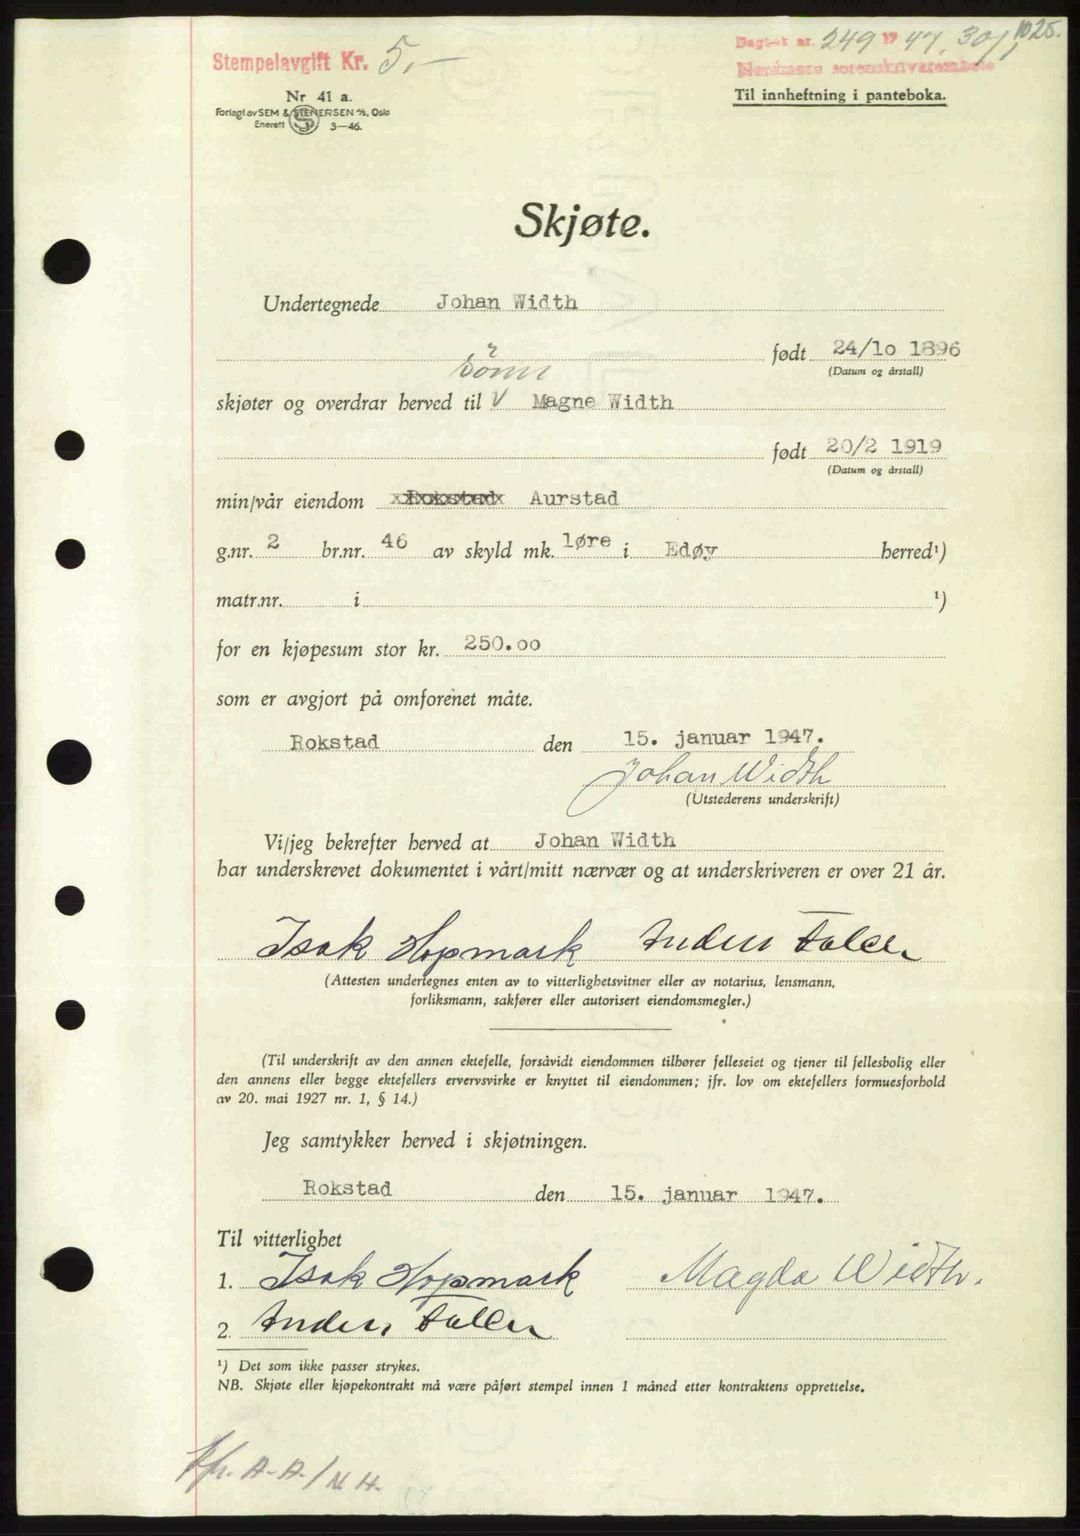 1025.
Stempelavgift Kr. 5,-
Dagbok nr. 249 1947. 30/1
Nordmøre sorenskriverembete
Nr 41 a.
Til innheftning i panteboka.
Forlagt av SEM & STENERSEN A/S, Oslo
Enerett 3—46.
Skjøte.
Undertegnede Johan Width
født 24/10 1896
(Datum og årstall)
sönn
skjøter og overdrar herved til V Magne Width
født 20/2 1919
(Datum og årstall)
min/vår eiendom xRokstadx Aurstad
g.nr. 2 br.nr. 46 av skyld mk. 1øre i Edøy herred¹)
matr.nr. i ¹)
for en kjøpesum stor kr. 250.oo
som er avgjort på omforenet måte.
Rokstad den 15. januar 1947.
Johan Width
(Utstederens underskrift)
Vi/jeg bekrefter herved at Johan Width
har underskrevet dokumentet i vårt/mitt nærvær og at underskriveren er over 21 år.
Isak Hopmark Anders Faller
(Attesten undertegnes enten av to vitterlighetsvitner eller av notarius, lensmann,
forliksmann, sakfører eller autorisert eiendomsmegler.)
(Til underskrift av den annen ektefelle, forsåvidt eiendommen tilhører felleseiet og tjener til fellesbolig eller
den annens eller begge ektefellers ervervsvirke er knyttet til eiendommen; jfr. lov om ektefellers formuesforhold
av 20. mai 1927 nr. 1, § 14.)
Jeg samtykker herved i skjøtningen.
Rokstad den 15. januar 1947.
Til vitterlighet
1. Isak Hopmark Magda Width.
2. Anders Faller
¹) Det som ikke passer strykes.
NB. Skjøte eller kjøpekontrakt må være påført stempel innen 1 måned etter kontraktens opprettelse.
A.A./N.H.